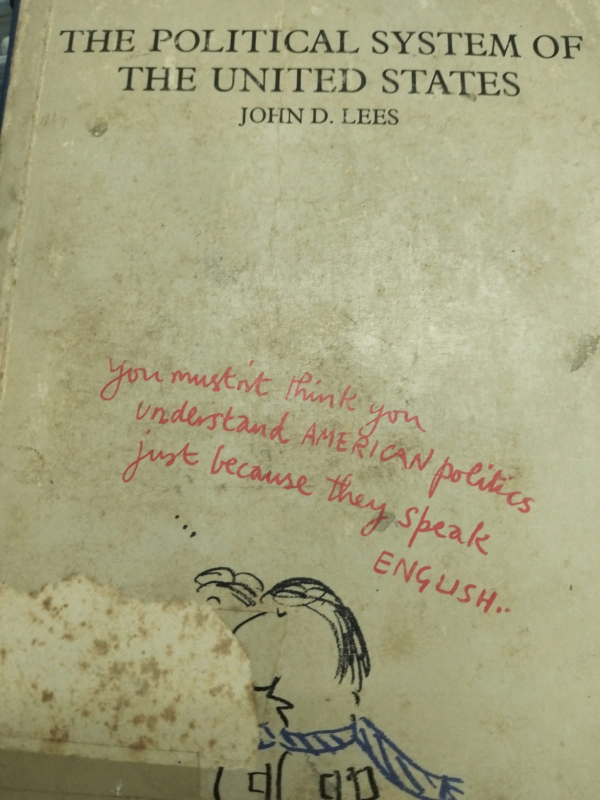 THE POLITICAL SYSTEM OF
THE UNITED STATES
JOHN D. LEES
You mustn't think you
understand AMERICAN politics
just because they speak
ENGLISH..